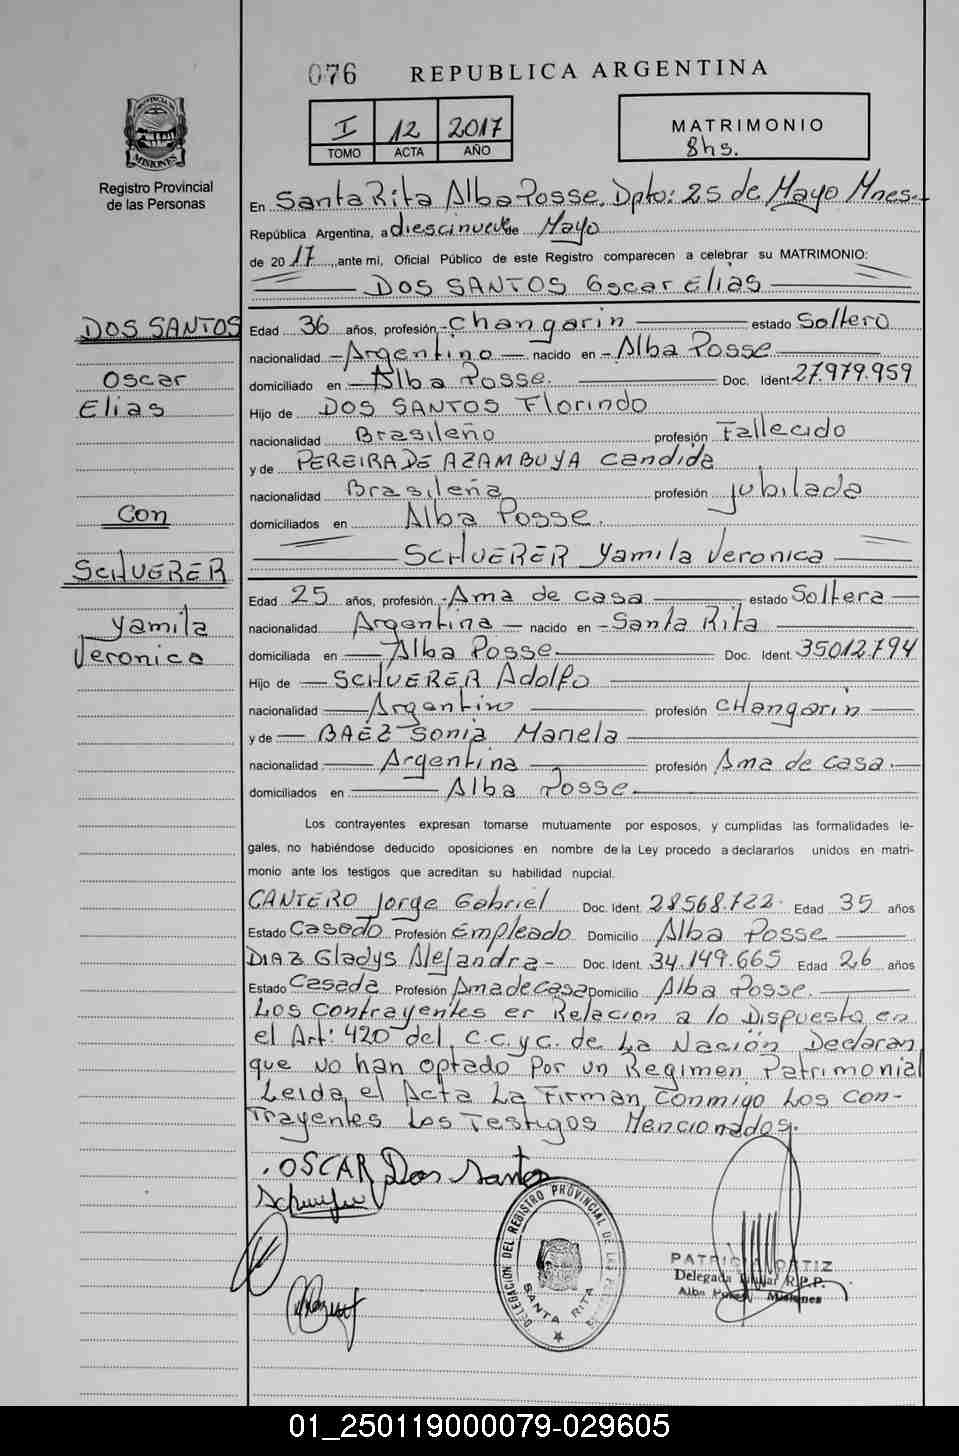 076 REPUBLICA ARGENTINA
PROVINCIA DE MISIONES
Registro Provincial
de las Personas
I 12 2017
TOMO ACTA AÑO
MATRIMONIO
8hs.
En Santa Rita Alba Posse. Dpto: 25 de Mayo Mnes.
República Argentina, a diescinueve de Mayo
de 2017, ante mi, Oficial Público de este Registro comparecen a celebrar su MATRIMONIO:
DOS SANTOS Oscar Elias
DOS SANTOS
Oscar
Elias
Con
SCHUERER
Yamila
Veronica
Edad 36 años, profesión Changarin estado Soltero
nacionalidad Argentino nacido en Alba Posse
domiciliado en Alba Posse. Doc. Ident. 27.979.959
Hijo de DOS SANTOS Florindo
nacionalidad Brasileño profesión Fallecido
y de PEREIRA DE AZAMBUYA Candida
nacionalidad Brasileña profesión Jubilada
domiciliados en Alba Posse.
SCHUERER Yamila Veronica
Edad 25 años, profesión Ama de casa estado Soltera
nacionalidad Argentina nacido en Santa Rita
domiciliada en Alba Posse Doc. Ident. 35012.794
Hijo de SCHUERER Adolfo
nacionalidad Argentino profesión CHangarin
y de BAEZ Sonia Mariela
nacionalidad Argentina profesión Ama de casa.
domiciliados en Alba Posse.
Los contrayentes expresan tomarse mutuamente por esposos, y cumplidas las formalidades le-
gales, no habiéndose deducido oposiciones en nombre de la Ley procedo a declararlos unidos en matri-
monio ante los testigos que acreditan su habilidad nupcial.
CANTERO Jorge Gabriel Doc. Ident. 28568.722. Edad 35 años
Estado Casado Profesión Empleado Domicilio Alba Posse
DIAZ Gladys Alejandra - Doc. Ident. 34.149.665 Edad 26 años
Estado Casada Profesión Ama de casa Domicilio Alba Posse.
Los Contrayentes en Relacion a lo Dispuesto en
el Art: 420 del C.C.y C. de La Nación Declaran
que No han optado Por un Regimen Patrimonial
Leida el Acta La Firman Conmigo Los Con-
Trayentes Los Testigos Mencionados.
OSCAR Dos Santos
DELEGACION DEL REGISTRO PROVINCIAL DE LAS PERSONAS
SANTA RITA
PATRICIA ORTIZ
Delegada Titular R.P.P.
Alba Posse Misiones
01_250119000079-029605